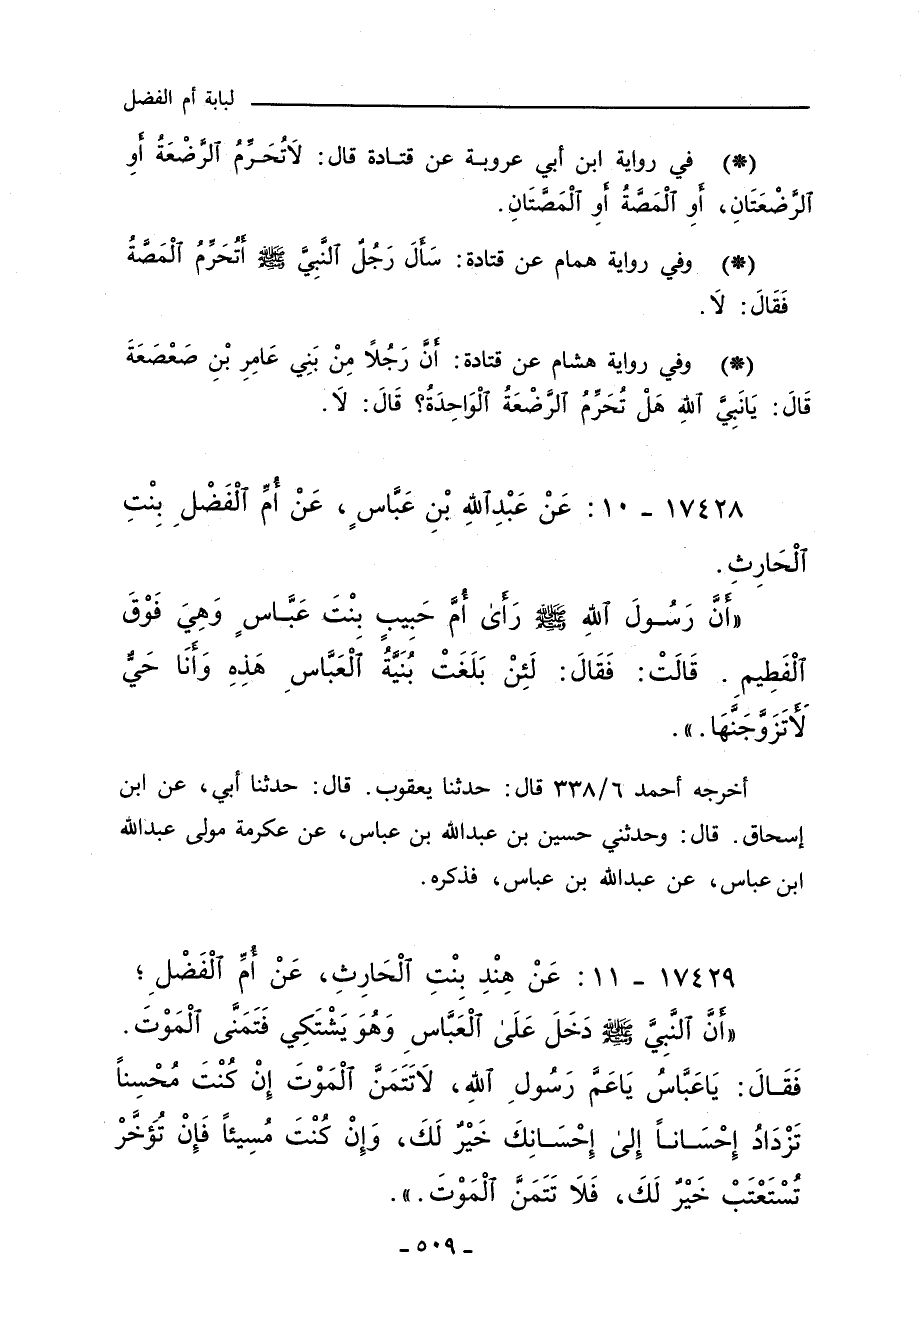 لبابة أم الفضل
(*) في رواية ابن أبي عروبة عن قتادة قال: لَاتُحَرِّمُ ٱلرَّضْعَةُ أَوِ
ٱلرَّضْعَتَانِ، أَوِ ٱلْمَصَّةُ أَوِ ٱلْمَصَّتَانِ.
(*) وفي رواية همام عن قتادة: سَأَلَ رَجُلٌ ٱلنَّبِيَّ ﷺ أَتُحَرِّمُ ٱلْمَصَّةُ
فَقَالَ: لَا.
(*) وفي رواية هشام عن قتادة: أَنَّ رَجُلًا مِنْ بَنِي عَامِرِ بْنِ صَعْصَعَةَ
قَالَ: يَانَبِيَّ ٱللهِ هَلْ تُحَرِّمُ ٱلرَّضْعَةُ ٱلْوَاحِدَةُ؟ قَالَ: لَا.
١٧٤٢٨ - ١٠: عَنْ عَبْدِٱللهِ بْنِ عَبَّاسٍ، عَنْ أُمِّ ٱلْفَضْلِ بِنْتِ
ٱلْحَارِثِ.
«أَنَّ رَسُولَ ٱللهِ ﷺ رَأَىٰ أُمَّ حَبِيبٍ بِنْتَ عَبَّاسٍ وَهِيَ فَوْقَ
ٱلْفَطِيمِ. قَالَتْ: فَقَالَ: لَئِنْ بَلَغَتْ بُنَيَّةُ ٱلْعَبَّاسِ هَذِهِ وَأَنَا حَيٌّ
لَأَتَزَوَّجَنَّهَا.».
أخرجه أحمد ٣٣٨/٦ قال: حدثنا يعقوب. قال: حدثنا أبي، عن ابن
إسحاق. قال: وحدثني حسين بن عبدالله بن عباس، عن عكرمة مولى عبدالله
ابن عباس، عن عبدالله بن عباس، فذكره.
١٧٤٢٩ - ١١: عَنْ هِنْدِ بِنْتِ ٱلْحَارِثِ، عَنْ أُمِّ ٱلْفَضْلِ؛
«أَنَّ ٱلنَّبِيَّ ﷺ دَخَلَ عَلَىٰ ٱلْعَبَّاسِ وَهُوَ يَشْتَكِي فَتَمَنَّى ٱلْمَوْتَ.
فَقَالَ: يَاعَبَّاسُ يَاعَمَّ رَسُولِ ٱللهِ، لَاتَتَمَنَّ ٱلْمَوْتَ إِنْ كُنْتَ مُحْسِناً
تَزْدَادُ إِحْسَاناً إِلىٰ إِحْسَانِكَ خَيْرٌ لَكَ، وَإِنْ كُنْتَ مُسِيئاً فَإِنْ تُؤَخَّرْ
تُسْتَعْتَبْ خَيْرٌ لَكَ، فَلَا تَتَمَنَّ ٱلْمَوْتَ.».
- ٥٠٩ -